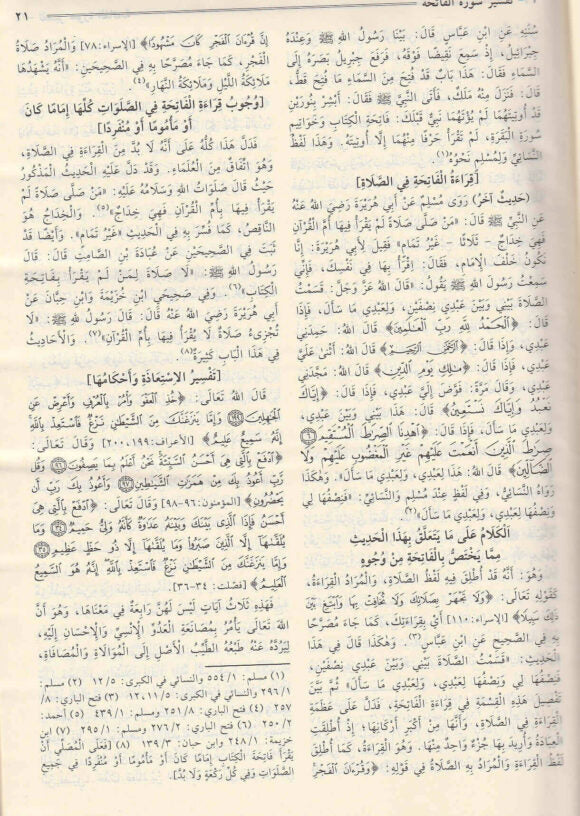 تفسير سورة الفاتحة
٢١
سُنَنِهِ عَنِ ابْنِ عَبَّاسٍ قَالَ: بَيْنَا رَسُولُ اللهِ ﷺ وَعِنْدَهُ
جِبْرَائِيلُ، إِذْ سَمِعَ نَقِيضًا فَوْقَهُ، فَرَفَعَ جِبْرِيلُ بَصَرَهُ إِلَى
السَّمَاءِ فَقَالَ: هَذَا بَابٌ قَدْ فُتِحَ مِنَ السَّمَاءِ مَا فُتِحَ قَطُّ،
قَالَ: فَنَزَلَ مِنْهُ مَلَكٌ، فَأَتَى النَّبِيَّ ﷺ فَقَالَ: أَبْشِرْ بِنُورَيْنِ
قَدْ أُوتِيتَهُمَا لَمْ يُؤْتَهُمَا نَبِيٌّ قَبْلَكَ: فَاتِحَةِ الْكِتَابِ وَخَوَاتِيمِ
سُورَةِ الْبَقَرَةِ، لَمْ تَقْرَأْ حَرْفًا مِنْهُمَا إِلَّا أُوتِيتَهُ. وَهَذَا لَفْظُ
النَّسَائِيِّ وَلِمُسْلِمٍ نَحْوُهُ(١)
[قِرَاءَةُ الْفَاتِحَةِ فِي الصَّلَاةِ]
(حَدِيثٌ آخَرُ) رَوَى مُسْلِمٌ عَنْ أَبِي هُرَيْرَةَ رَضِيَ اللهُ عَنْهُ
عَنِ النَّبِيِّ ﷺ قَالَ: «مَنْ صَلَّى صَلَاةً لَمْ يَقْرَأْ فِيهَا أُمَّ الْقُرْآنِ
فَهِيَ خِدَاجٌ - ثَلَاثًا - غَيْرُ تَمَامٍ» فَقِيلَ لِأَبِي هُرَيْرَةَ: إِنَّا
نَكُونُ خَلْفَ الْإِمَامِ، فَقَالَ: اِقْرَأْ بِهَا فِي نَفْسِكَ، فَإِنِّي
سَمِعْتُ رَسُولَ اللهِ ﷺ يَقُولُ: «قَالَ اللهُ عَزَّ وَجَلَّ: قَسَمْتُ
الصَّلَاةَ بَيْنِي وَبَيْنَ عَبْدِي نِصْفَيْنِ، وَلِعَبْدِي مَا سَأَلَ، فَإِذَا
قَالَ: ﴿الْحَمْدُ لِلَّهِ رَبِّ الْعَالَمِينَ﴾ قَالَ اللهُ: حَمِدَنِي
عَبْدِي، وَإِذَا قَالَ: ﴿الرَّحْمَنِ الرَّحِيمِ﴾ قَالَ اللهُ: أَثْنَى عَلَيَّ
عَبْدِي، فَإِذَا قَالَ: ﴿مَالِكِ يَوْمِ الدِّينِ﴾ قَالَ اللهُ: مَجَّدَنِي
عَبْدِي، وَقَالَ مَرَّةً: فَوَّضَ إِلَيَّ عَبْدِي، فَإِذَا قَالَ: ﴿إِيَّاكَ
نَعْبُدُ وَإِيَّاكَ نَسْتَعِينُ﴾ قَالَ: هَذَا بَيْنِي وَبَيْنَ عَبْدِي،
وَلِعَبْدِي مَا سَأَلَ، فَإِذَا قَالَ: ﴿اهْدِنَا الصِّرَاطَ الْمُسْتَقِيمَ ٦
صِرَاطَ الَّذِينَ أَنْعَمْتَ عَلَيْهِمْ غَيْرِ الْمَغْضُوبِ عَلَيْهِمْ وَلَا
الضَّالِّينَ﴾ قَالَ اللهُ: هَذَا لِعَبْدِي، وَلِعَبْدِي مَا سَأَلَ». وَهَكَذَا
رَوَاهُ النَّسَائِيُّ، وَفِي لَفْظٍ عِنْدَ مُسْلِمٍ وَالنَّسَائِيِّ: «فَنِصْفُهَا لِي
وَنِصْفُهَا لِعَبْدِي، وَلِعَبْدِي مَا سَأَلَ»(٢).
الْكَلَامُ عَلَى مَا يَتَعَلَّقُ بِهَذَا الْحَدِيثِ
مِمَّا يَخْتَصُّ بِالْفَاتِحَةِ مِنْ وُجُوهٍ
وَهُوَ: أَنَّهُ قَدْ أُطْلِقَ فِيهِ لَفْظُ الصَّلَاةِ، وَالْمُرَادُ الْقِرَاءَةُ،
كَقَوْلِهِ تَعَالَى: ﴿وَلَا تَجْهَرْ بِصَلَاتِكَ وَلَا تُخَافِتْ بِهَا وَابْتَغِ بَيْنَ
ذَلِكَ سَبِيلًا﴾ [الإسراء:١١٠] أَيْ بِقِرَاءَتِكَ، كَمَا جَاءَ مُصَرَّحًا
بِهِ فِي الصَّحِيحِ عَنِ ابْنِ عَبَّاسٍ(٣). وَهَكَذَا قَالَ فِي هَذَا
الْحَدِيثِ: «قَسَمْتُ الصَّلَاةَ بَيْنِي وَبَيْنَ عَبْدِي نِصْفَيْنِ،
فَنِصْفُهَا لِي وَنِصْفُهَا لِعَبْدِي، وَلِعَبْدِي مَا سَأَلَ» ثُمَّ بَيَّنَ
تَفْصِيلَ هَذِهِ الْقِسْمَةِ فِي قِرَاءَةِ الْفَاتِحَةِ، فَدَلَّ عَلَى عَظَمَةِ
الْقِرَاءَةِ فِي الصَّلَاةِ، وَأَنَّهَا مِنْ أَكْبَرِ أَرْكَانِهَا؛ إِذْ أُطْلِقَتِ
الْعِبَادَةُ وَأُرِيدَ بِهَا جُزْءٌ وَاحِدٌ مِنْهَا. وَهُوَ الْقِرَاءَةُ، كَمَا أُطْلِقَ
لَفْظُ الْقِرَاءَةِ وَالْمُرَادُ بِهِ الصَّلَاةُ فِي قَوْلِهِ: ﴿وَقُرْآنَ الْفَجْرِ
إِنَّ قُرْآنَ الْفَجْرِ كَانَ مَشْهُودًا﴾ [الإسراء:٧٨] وَالْمُرَادُ صَلَاةُ
الْفَجْرِ، كَمَا جَاءَ مُصَرَّحًا بِهِ فِي الصَّحِيحَيْنِ: «أَنَّهُ يَشْهَدُهَا
مَلَائِكَةُ اللَّيْلِ وَمَلَائِكَةُ النَّهَارِ»(٤).
[وُجُوبُ قِرَاءَةِ الْفَاتِحَةِ فِي الصَّلَوَاتِ كُلِّهَا إِمَامًا كَانَ
أَوْ مَأْمُومًا أَوْ مُنْفَرِدًا]
فَدَلَّ هَذَا كُلُّهُ عَلَى أَنَّهُ لَا بُدَّ مِنَ الْقِرَاءَةِ فِي الصَّلَاةِ،
وَهُوَ اتِّفَاقٌ مِنَ الْعُلَمَاءِ. وَقَدْ دَلَّ عَلَيْهِ الْحَدِيثُ الْمَذْكُورُ
حَيْثُ قَالَ صَلَوَاتُ اللهِ وَسَلَامُهُ عَلَيْهِ: «مَنْ صَلَّى صَلَاةً لَمْ
يَقْرَأْ فِيهَا بِأُمِّ الْقُرْآنِ فَهِيَ خِدَاجٌ»(٥) وَالْخِدَاجُ هُوَ
النَّاقِصُ، كَمَا فُسِّرَ بِهِ فِي الْحَدِيثِ «غَيْرُ تَمَامٍ». وَأَيْضًا قَدْ
ثَبَتَ فِي الصَّحِيحَيْنِ عَنْ عُبَادَةَ بْنِ الصَّامِتِ قَالَ: قَالَ
رَسُولُ اللهِ ﷺ: «لَا صَلَاةَ لِمَنْ لَمْ يَقْرَأْ بِفَاتِحَةِ
الْكِتَابِ»(٦). وَفِي صَحِيحَيِ ابْنِ خُزَيْمَةَ وَابْنِ حِبَّانَ عَنْ
أَبِي هُرَيْرَةَ رَضِيَ اللهُ عَنْهُ قَالَ: قَالَ رَسُولُ اللهِ ﷺ: «لَا
تُجْزِئُ صَلَاةٌ لَا يُقْرَأُ فِيهَا بِأُمِّ الْقُرْآنِ»(٧). وَالْأَحَادِيثُ
فِي هَذَا الْبَابِ كَثِيرَةٌ(٨).
[تَفْسِيرُ الِاسْتِعَاذَةِ وَأَحْكَامُهَا]
قَالَ اللهُ تَعَالَى: ﴿خُذِ الْعَفْوَ وَأْمُرْ بِالْعُرْفِ وَأَعْرِضْ عَنِ
الْجَاهِلِينَ ١٩٩ وَإِمَّا يَنْزَغَنَّكَ مِنَ الشَّيْطَانِ نَزْغٌ فَاسْتَعِذْ بِاللَّهِ
إِنَّهُ سَمِيعٌ عَلِيمٌ﴾ [الأعراف:١٩٩، ٢٠٠] وَقَالَ تَعَالَى:
﴿ادْفَعْ بِالَّتِي هِيَ أَحْسَنُ السَّيِّئَةَ نَحْنُ أَعْلَمُ بِمَا يَصِفُونَ ٩٦ وَقُلْ
رَبِّ أَعُوذُ بِكَ مِنْ هَمَزَاتِ الشَّيَاطِينِ ٩٧ وَأَعُوذُ بِكَ رَبِّ أَنْ
يَحْضُرُونِ﴾ [المؤمنون:٩٦-٩٨] وَقَالَ تَعَالَى: ﴿ادْفَعْ بِالَّتِي هِيَ
أَحْسَنُ فَإِذَا الَّذِي بَيْنَكَ وَبَيْنَهُ عَدَاوَةٌ كَأَنَّهُ وَلِيٌّ حَمِيمٌ ٣٤ وَمَا
يُلَقَّاهَا إِلَّا الَّذِينَ صَبَرُوا وَمَا يُلَقَّاهَا إِلَّا ذُو حَظٍّ عَظِيمٍ ٣٥
وَإِمَّا يَنْزَغَنَّكَ مِنَ الشَّيْطَانِ نَزْغٌ فَاسْتَعِذْ بِاللَّهِ إِنَّهُ هُوَ السَّمِيعُ
الْعَلِيمُ﴾ [فصلت: ٣٤-٣٦].
فَهَذِهِ ثَلَاثُ آيَاتٍ لَيْسَ لَهُنَّ رَابِعَةٌ فِي مَعْنَاهَا، وَهُوَ أَنَّ
اللهَ تَعَالَى يَأْمُرُ بِمُصَانَعَةِ الْعَدُوِّ الْإِنْسِيِّ وَالْإِحْسَانِ إِلَيْهِ،
لِيَرُدَّهُ عَنْهُ طَبْعُهُ الطَّيِّبُ الْأَصْلِ إِلَى الْمُوَالَاةِ وَالْمُصَافَاةِ،
(١) مسلم: ٥٥٤/١ والنسائي في الكبرى: ١٢/٥ (٢) مسلم:
٢٩٦/١ والنسائي في الكبرى: ١٢،١١/٥ (٣) فتح الباري: ٨/
٢٥٧ (٤) فتح الباري: ٢٥١/٨ ومسلم: ٤٣٩/١ (٥) أحمد:
٢٥٠/٢ (٦) فتح الباري: ٢٧٦/٢ ومسلم: ٢٩٥/١ (٧) ابن
خزيمة: ٢٤٨/١ وابن حبان: ١٣٩/٣ (٨) [فَعَلَى الْمُصَلِّي أَنْ
يَقْرَأَ فَاتِحَةَ الْكِتَابِ إِمَامًا كَانَ أَوْ مَأْمُومًا أَوْ مُنْفَرِدًا فِي جَمِيعِ
الصَّلَوَاتِ وَفِي كُلِّ رَكْعَةٍ وَلَا بُدَّ].